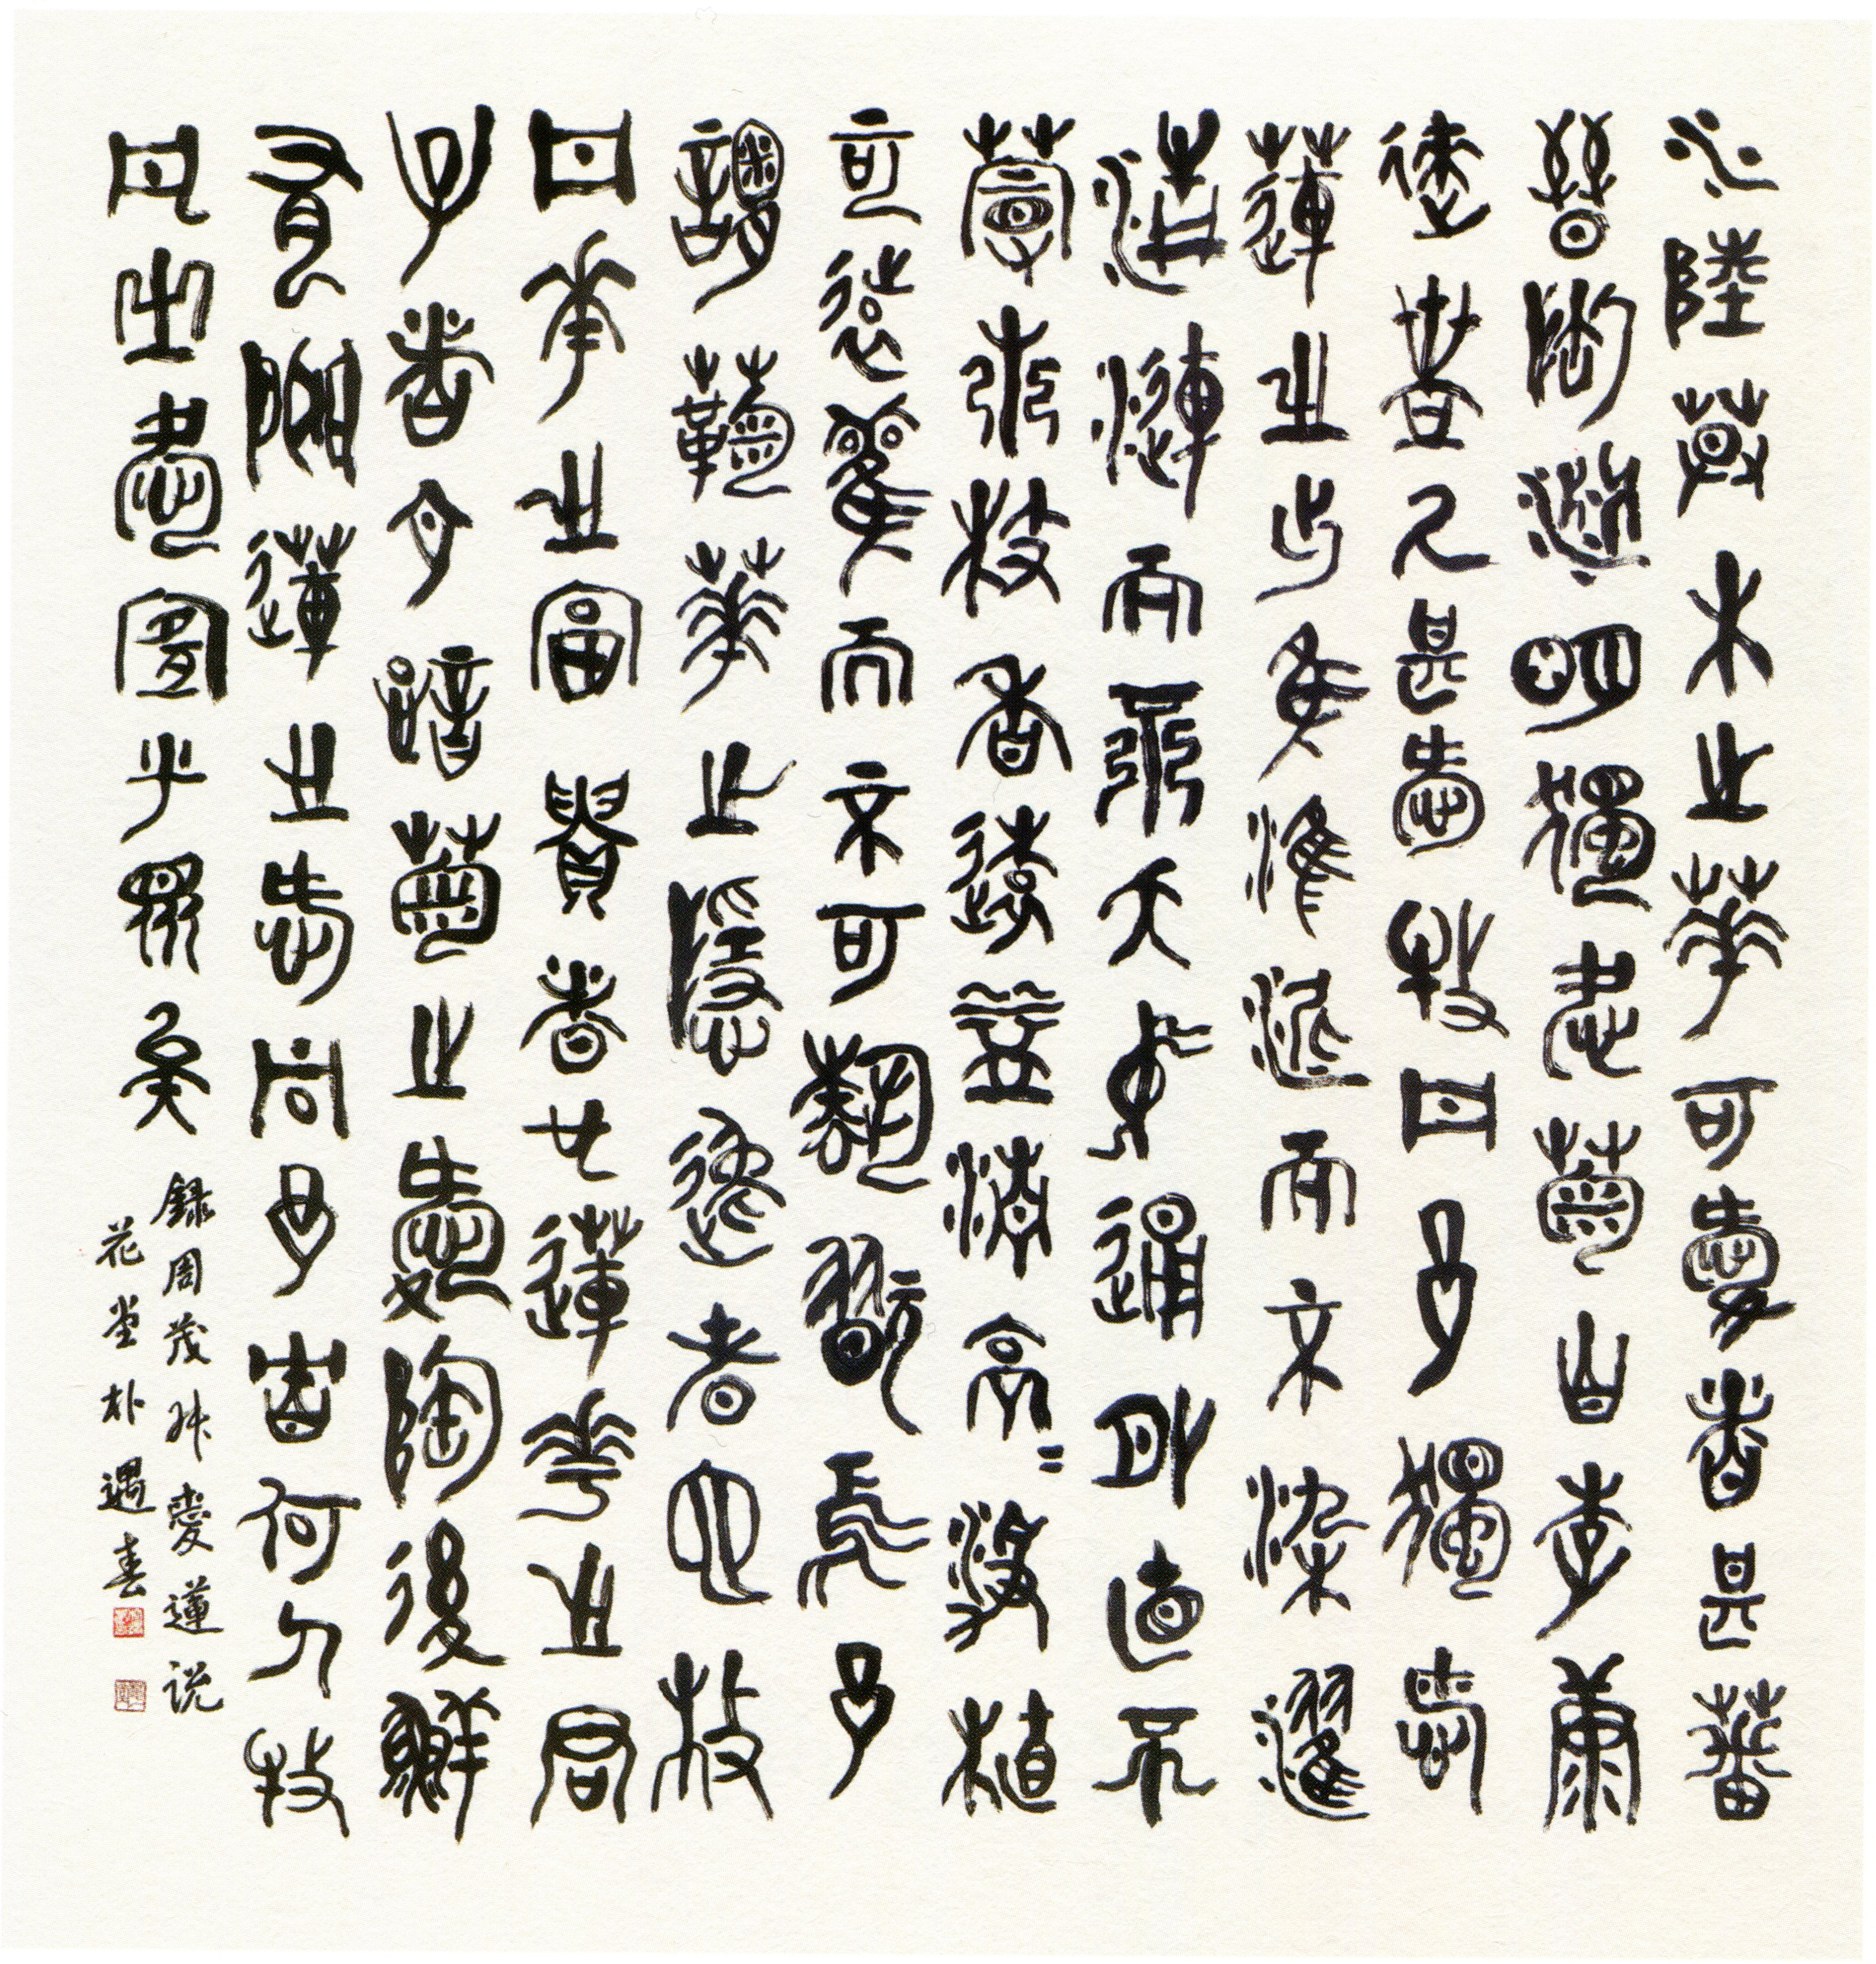 水陸草木之華可愛者甚蕃
晉陶淵明獨愛菊自李唐
來世人甚愛牡丹予獨愛
蓮之出於淤泥而不染濯
清漣而不夭中通外直不
蔓不枝香遠益清亭〻淨植
可遠觀而不可褻翫焉予
謂菊華之隱逸者也牡
丹華之富貴者也蓮華之君
子者也噫菊之愛陶後鮮
有聞蓮之愛同予者何人牡
丹之愛宜乎眾矣
錄周茂叔愛蓮說
花堂朴遇春